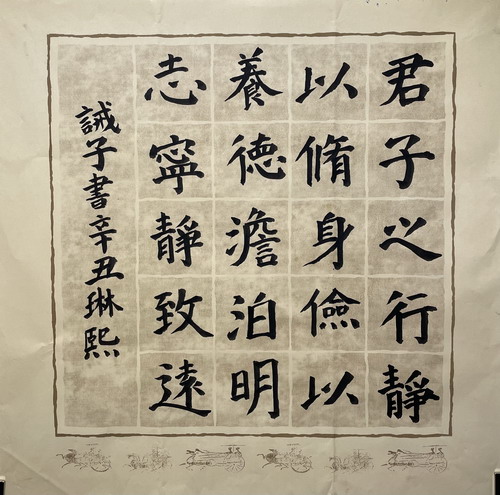 君子之行静
以脩身儉以
養德澹泊明
志寧靜致遠
誡子書辛丑琳熙